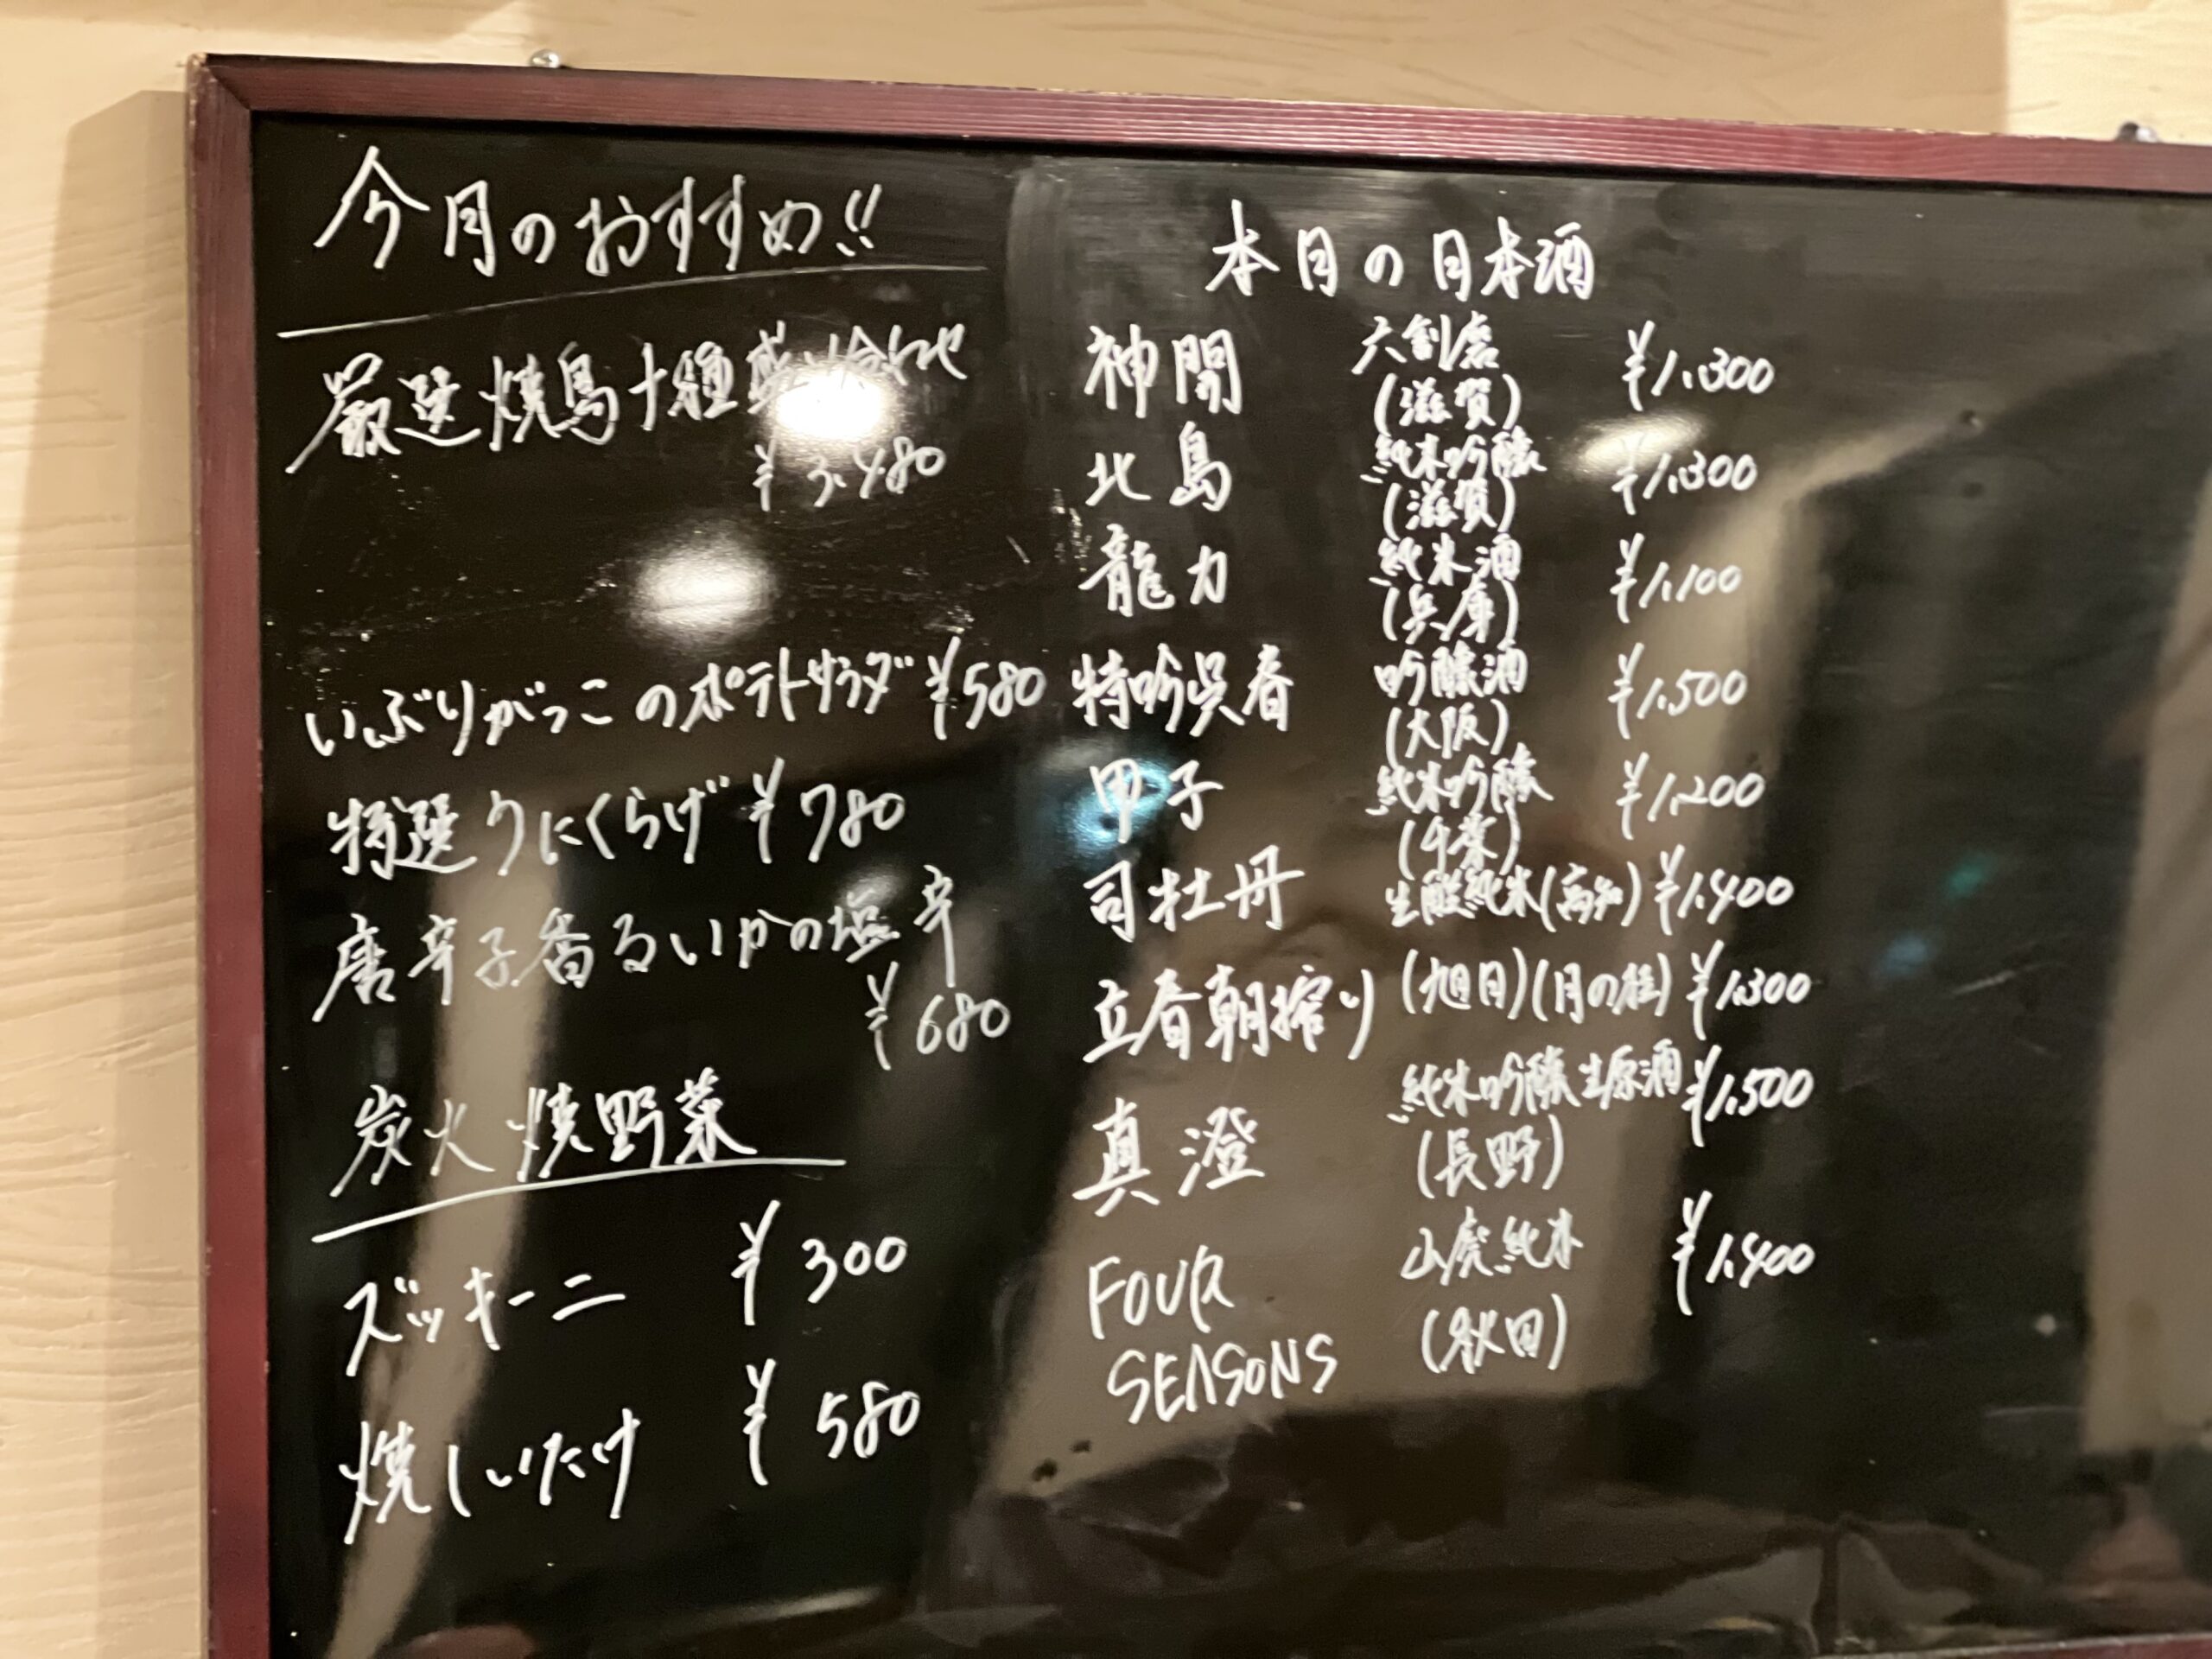 今月のおすすめ!!
厳選焼鳥十種盛り合わせ
¥3,480
いぶりがっこのポテトサラダ ¥580
特選うにくらげ ¥780
唐辛子香るいかの塩辛
¥680
炭火焼野菜
ズッキーニ ¥300
焼しいたけ ¥580
本日の日本酒
神開 六割磨 ¥1,300
(滋賀)
北島 純米吟醸 ¥1,300
(滋賀)
龍力 純米酒 ¥1,100
(兵庫)
特吟呉春 吟醸酒 ¥1,500
(大阪)
甲子 純米吟醸 ¥1,200
(千葉)
司牡丹 生酛純米(高知) ¥1,400
立春朝搾り (旭日)(月の桂) ¥1,300
純米吟醸生原酒 ¥1,500
真澄 (長野)
FOUR 山廃純米 ¥1,400
SEASONS (秋田)